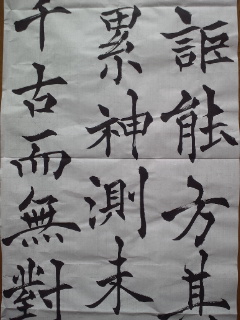 詎能方其
累神測未
千古而無對